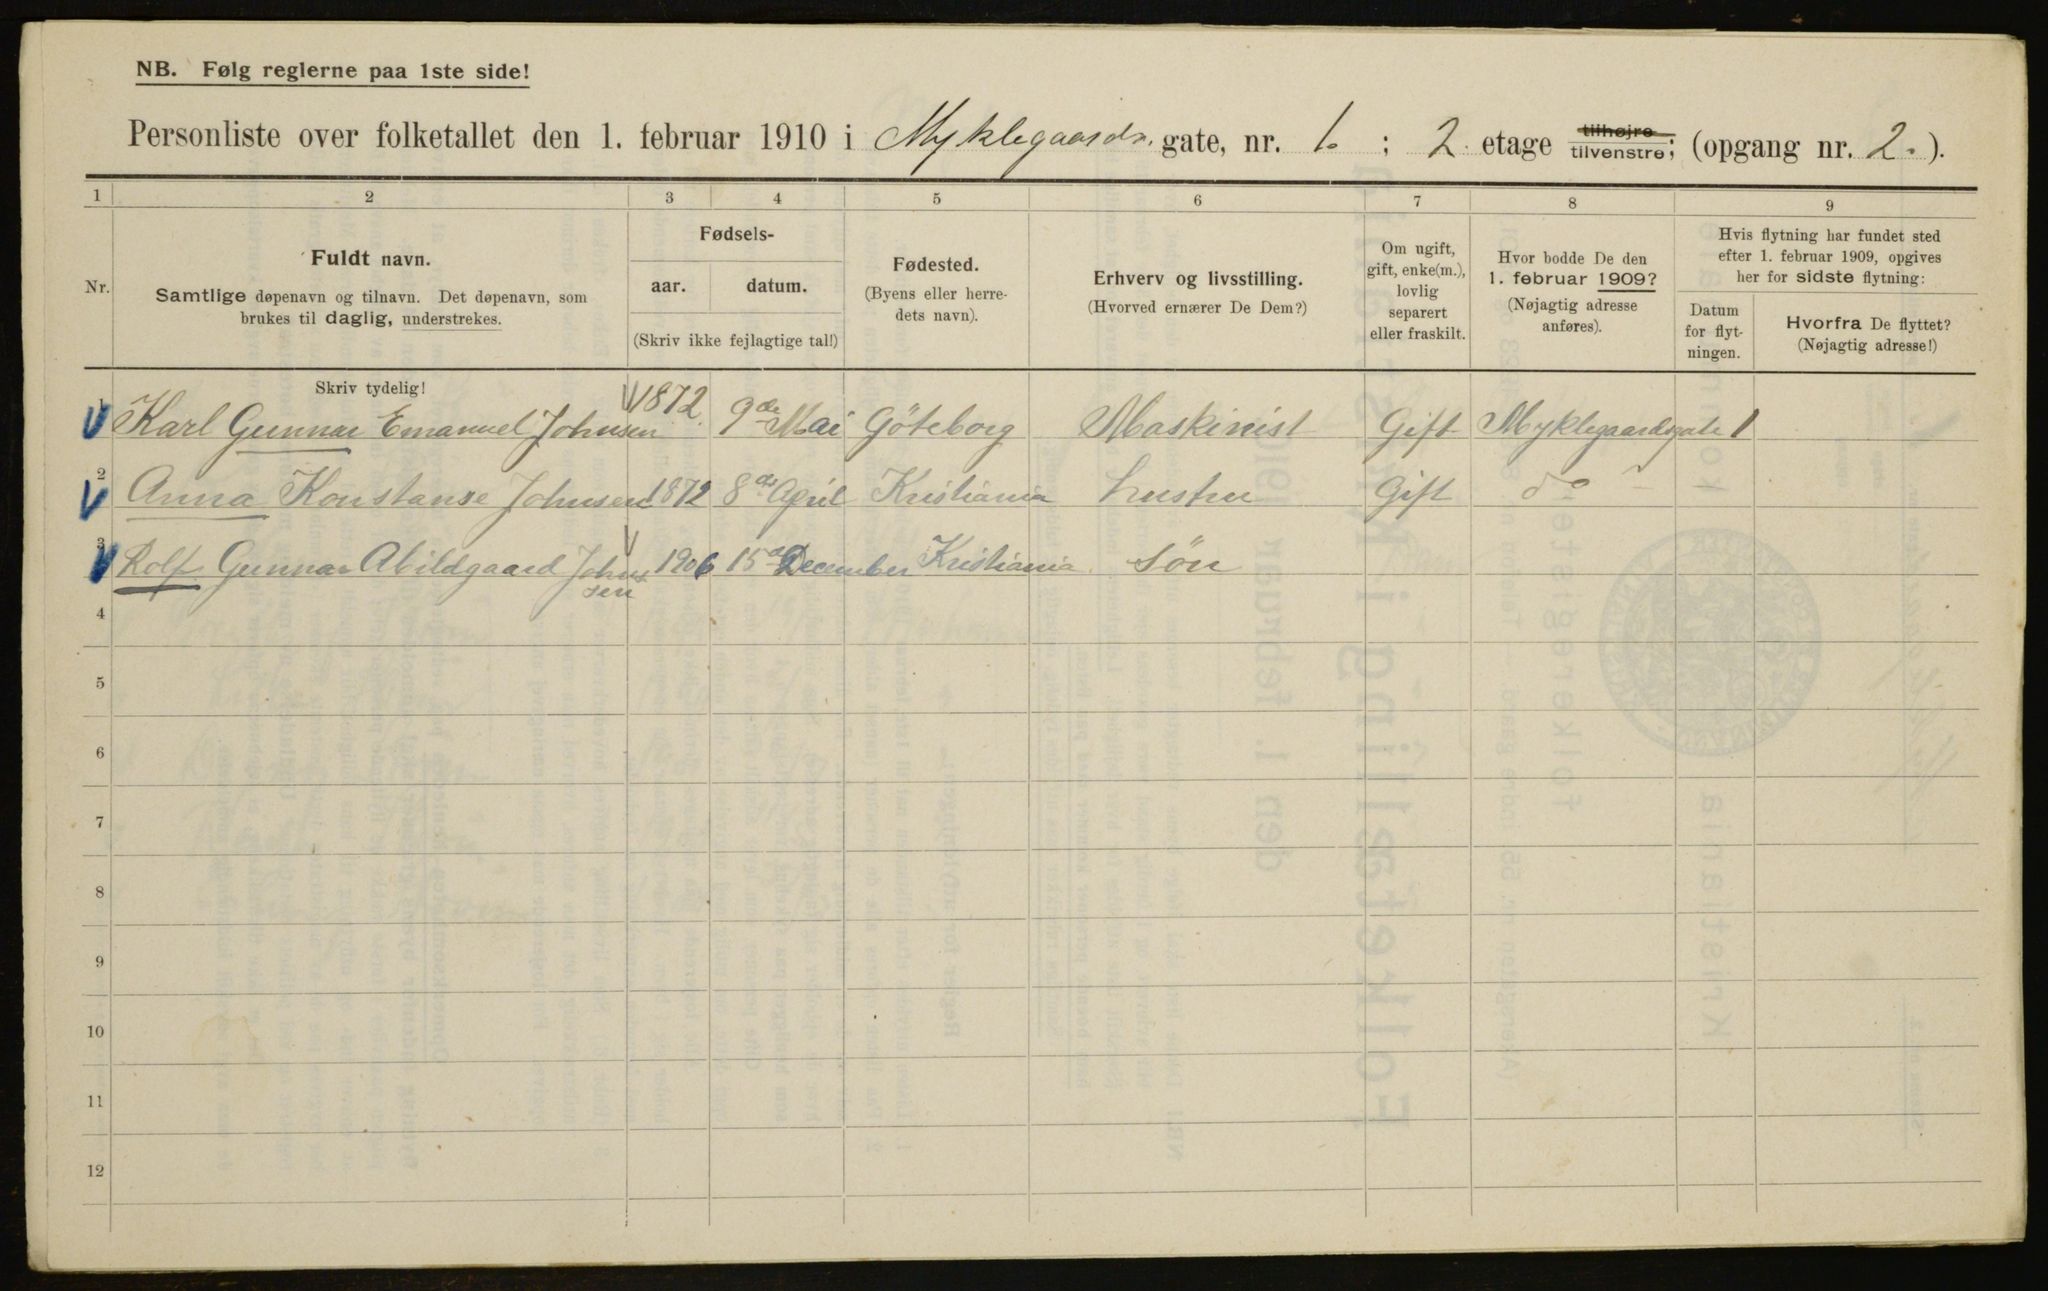 NB. Følg reglerne paa 1ste side!
Personliste over folketallet den 1. februar 1910 i Myklegaards. gate, nr. 1. ; 2 etage tilhøjre tilvenstre; (opgang nr. 2.).
1 2 3 4 5 6 7 8 9
Nr.
Fuldt navn.
Samtlige døpenavn og tilnavn. Det døpenavn, som
brukes til daglig, understrekes.
Fødsels-
aar. datum.
(Skriv ikke fejlagtige tal!)
Fødested.
(Byens eller herre-
dets navn).
Erhverv og livsstilling.
(Hvorved ernærer De Dem?)
Om ugift,
gift, enke(m.),
lovlig
separert
eller fraskilt.
Hvor bodde De den
1. februar 1909?
(Nøjagtig adresse
anføres).
Hvis flytning har fundet sted
efter 1. februar 1909, opgives
her for sidste flytning:
Datum
for flyt-
ningen.
Hvorfra De flyttet?
(Nøjagtig adresse!)
Skriv tydelig!
1 Karl Gunnar Emanuel Johnsen 1872. 9de Mai Göteborg Maskinist Gift Myklegaardsgate 1
2 Anna Konstanse Johnsen 1872 8de April Kristiania hustru Gift do
3 Rolf Gunnar Abildgaard John- 1906 15de December Kristiania søn
sen
4
5
6
7
8
9
10
11
12